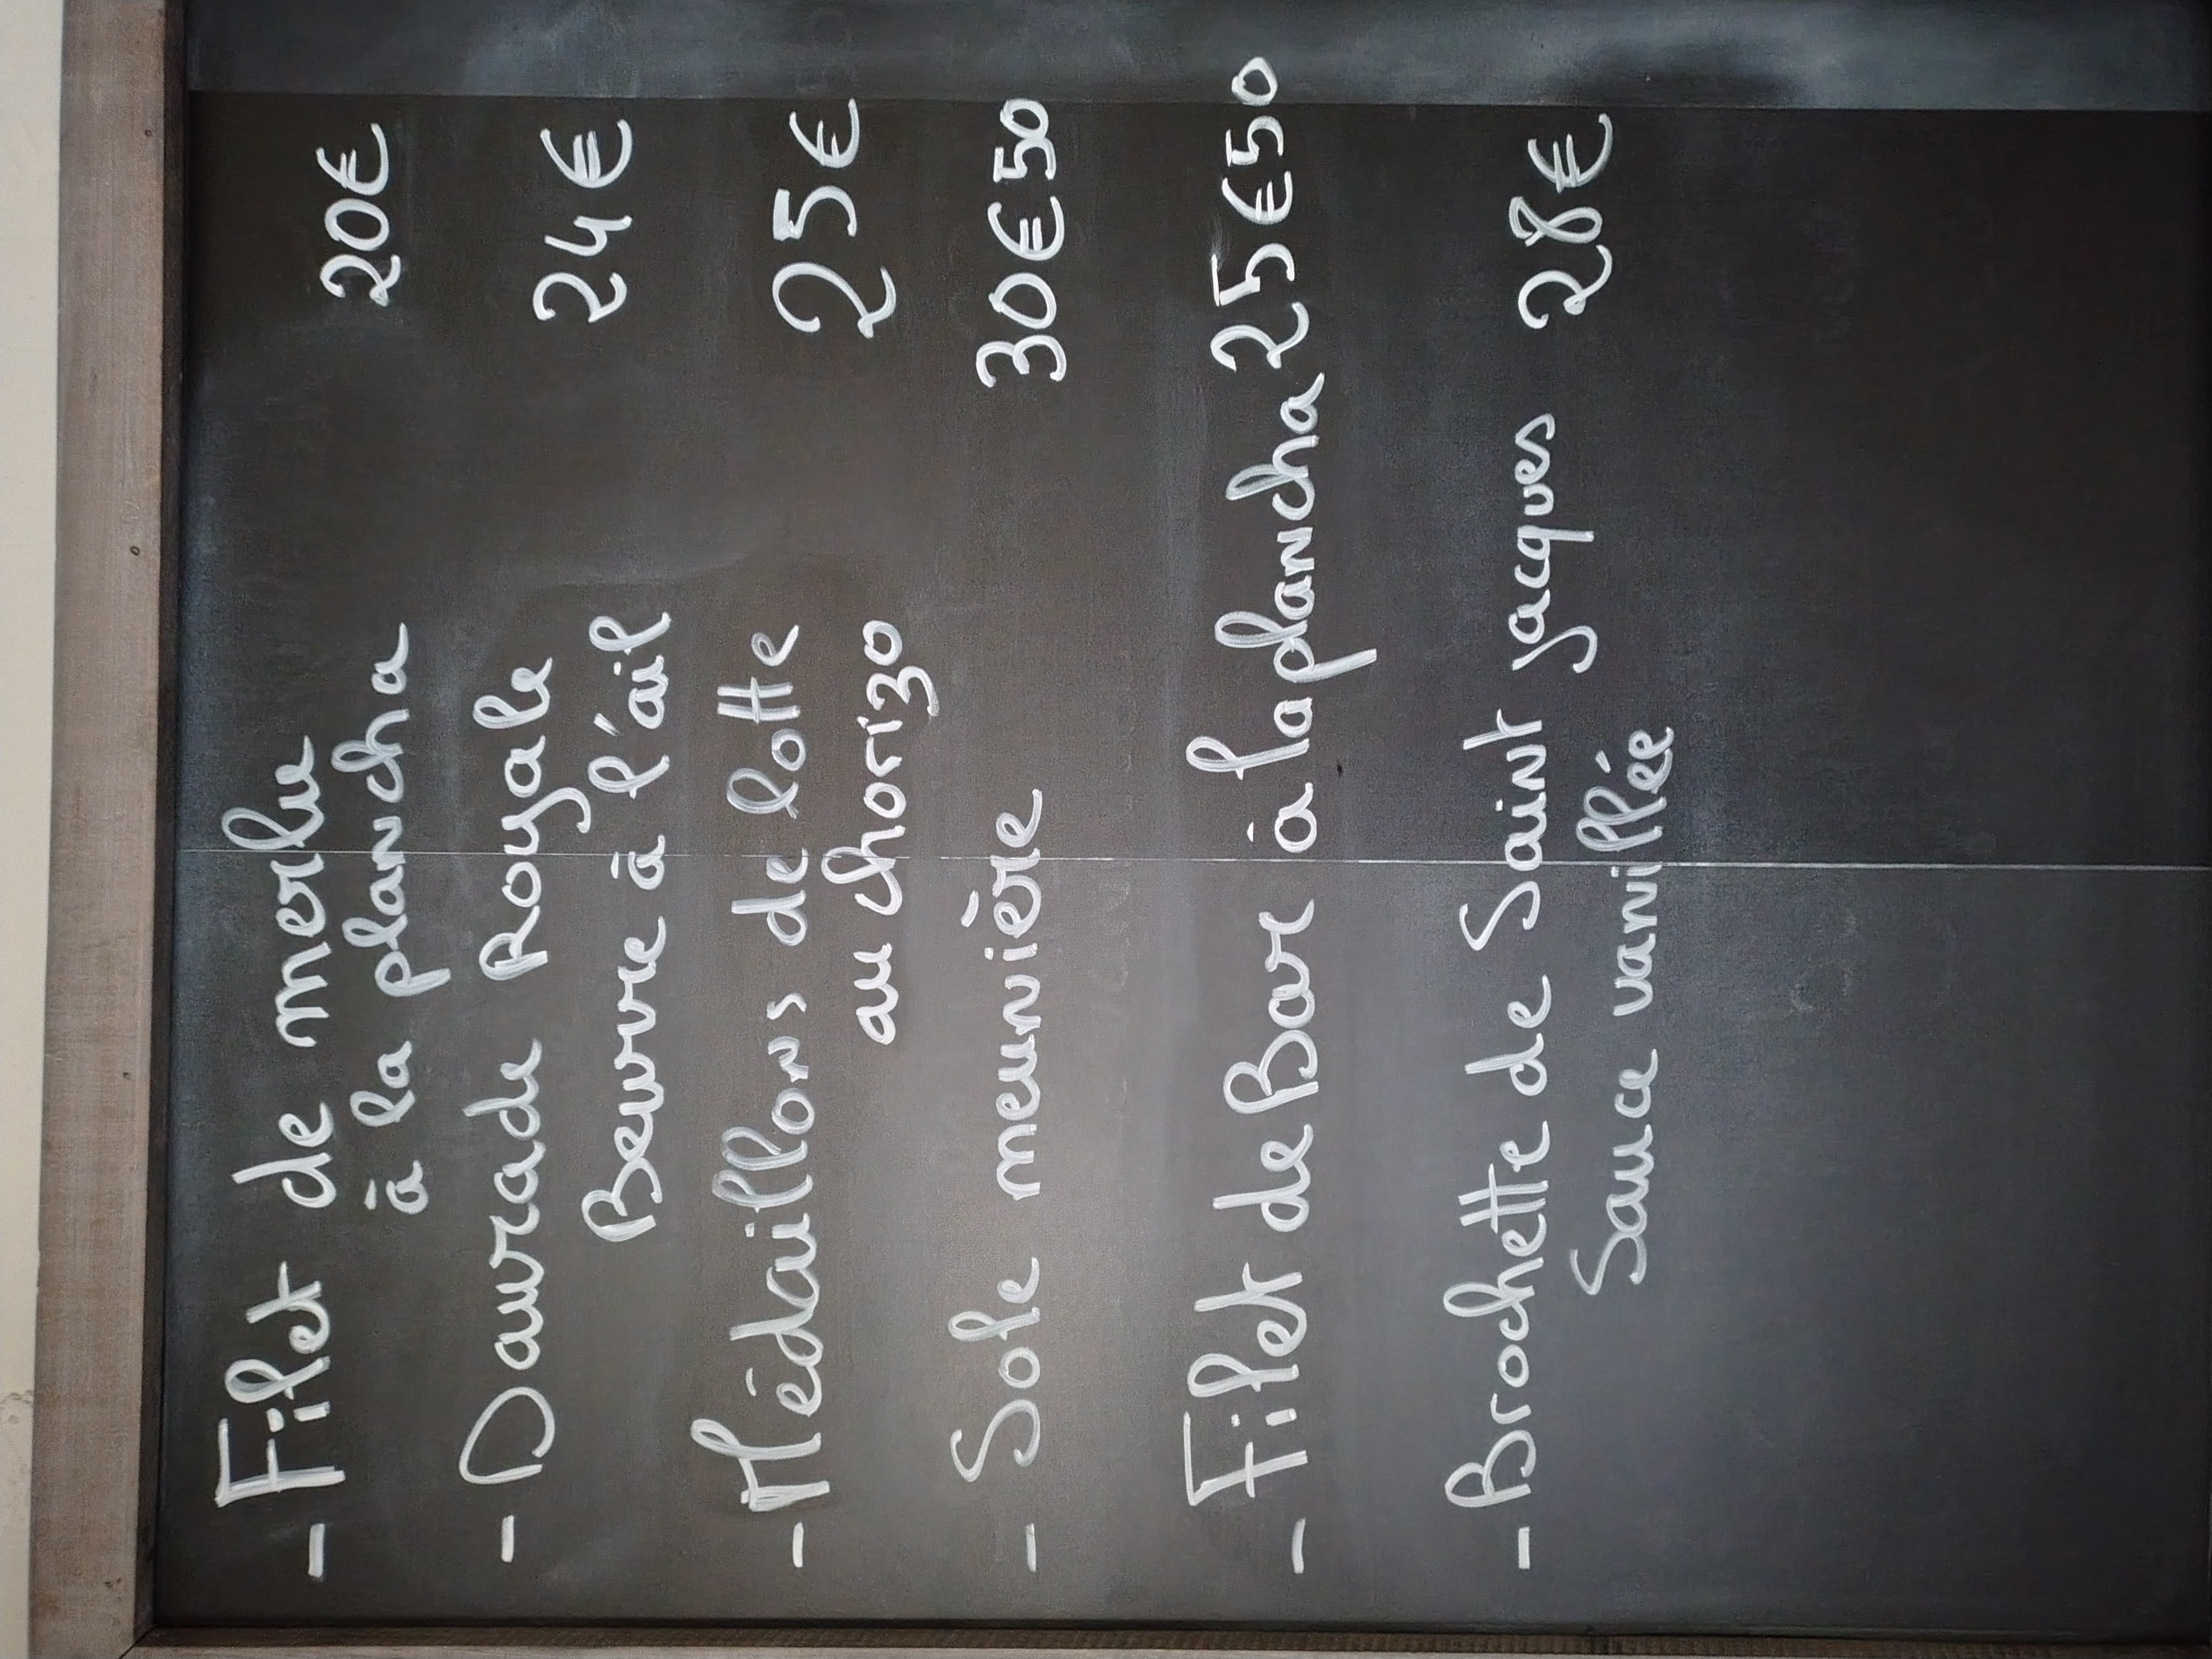 - Filet de merlu
à la plancha 20€
- Daurade Royale
Beurre à l'ail 24€
- Médaillons de lotte
au chorizo 25€
- Sole meunière 30€50
- Filet de Bar à la plancha 25€50
- Brochette de Saint Jacques 28€
Sauce vanillée